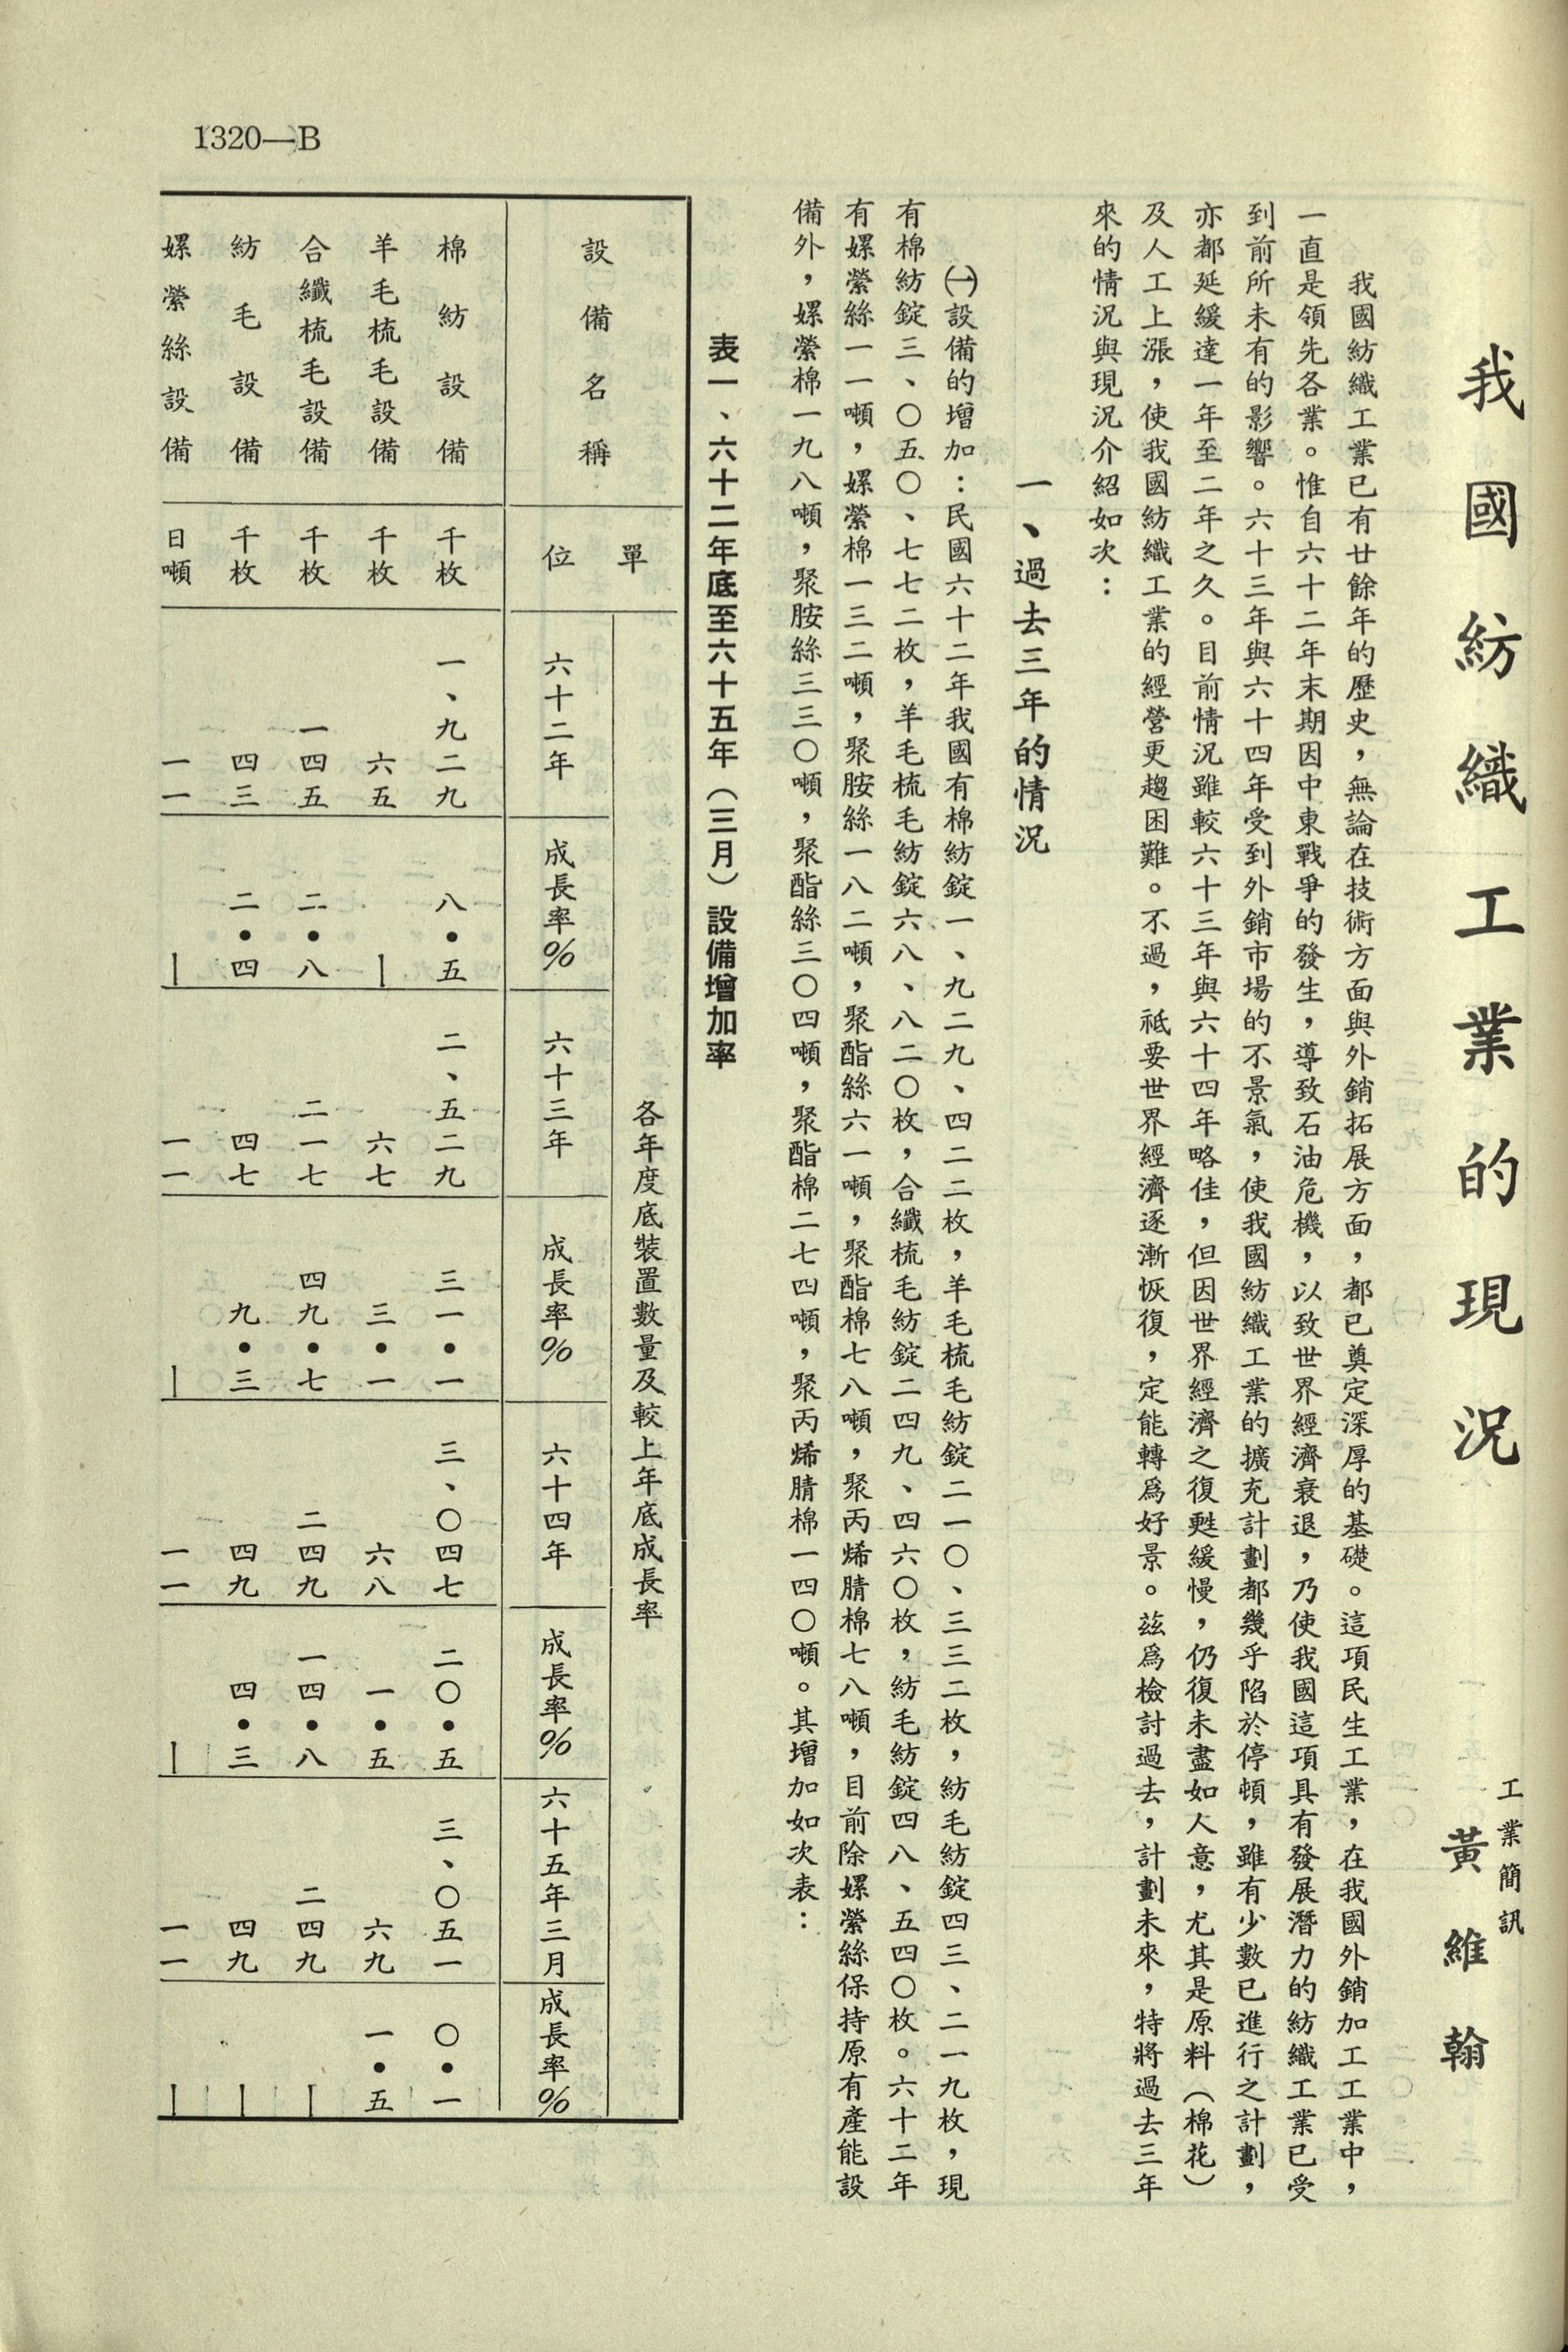 1320—B
我國紡織工業的現況
工業簡訊
黃維翰
我國紡織工業已有廿餘年的歷史，無論在技術方面與外銷拓展方面，都已奠定深厚的基礎。這項民生工業，在我國外銷加工工業中，
一直是領先各業。惟自六十二年末期因中東戰爭的發生，導致石油危機，以致世界經濟衰退，乃使我國這項具有發展潛力的紡織工業已受
到前所未有的影響。六十三年與六十四年受到外銷市場的不景氣，使我國紡織工業的擴充計劃都幾乎陷於停頓，雖有少數已進行之計劃，
亦都延緩達一年至二年之久。目前情況雖較六十三年與六十四年略佳，但因世界經濟之復甦緩慢，仍復未盡如人意，尤其是原料（棉花）
及人工上漲，使我國紡織工業的經營更趨困難。不過，祗要世界經濟逐漸恢復，定能轉爲好景。茲爲檢討過去，計劃未來，特將過去三年
來的情況與現況介紹如次：
一、過去三年的情況
㈠設備的增加：民國六十二年我國有棉紡錠一、九二九、四二二枚，羊毛梳毛紡錠二一〇、三三二枚，紡毛紡錠四三、二一九枚，現
有棉紡錠三、〇五〇、七七二枚，羊毛梳毛紡錠六八、八二〇枚，合纖梳毛紡錠二四九、四六〇枚，紡毛紡錠四八、五四〇枚。六十二年
有嫘縈絲一一噸，嫘縈棉一三二噸，聚胺絲一八二噸，聚酯絲六一噸，聚酯棉七八噸，聚丙烯腈棉七八噸，目前除嫘縈絲保持原有產能設
備外，嫘縈棉一九八噸，聚胺絲三三〇噸，聚酯絲三〇四噸，聚酯棉二七四噸，聚丙烯腈棉一四〇噸。其增加如次表：
表一、六十二年底至六十五年（三月）設備增加率
設備名稱
單位
各年度底裝置數量及較上年底成長率
六十二年 成長率% 六十三年 成長率% 六十四年 成長率% 六十五年三月 成長率%
棉紡設備 千枚 一、九二九 八•五 二、五二九 三一•一 三、〇四七 二〇•五 三、〇五一 〇•一
羊毛梳毛設備 千枚 六五 — 六七 三•一 六八 一•五 六九 一•五
合纖梳毛設備 千枚 一四五 二•八 二一七 四九•七 二四九 一四•八 二四九 —
紡毛設備 千枚 四三 二•四 四七 九•三 四九 四•三 四九 —
嫘縈絲設備 日噸 一一 — 一一 — 一一 — 一一 —